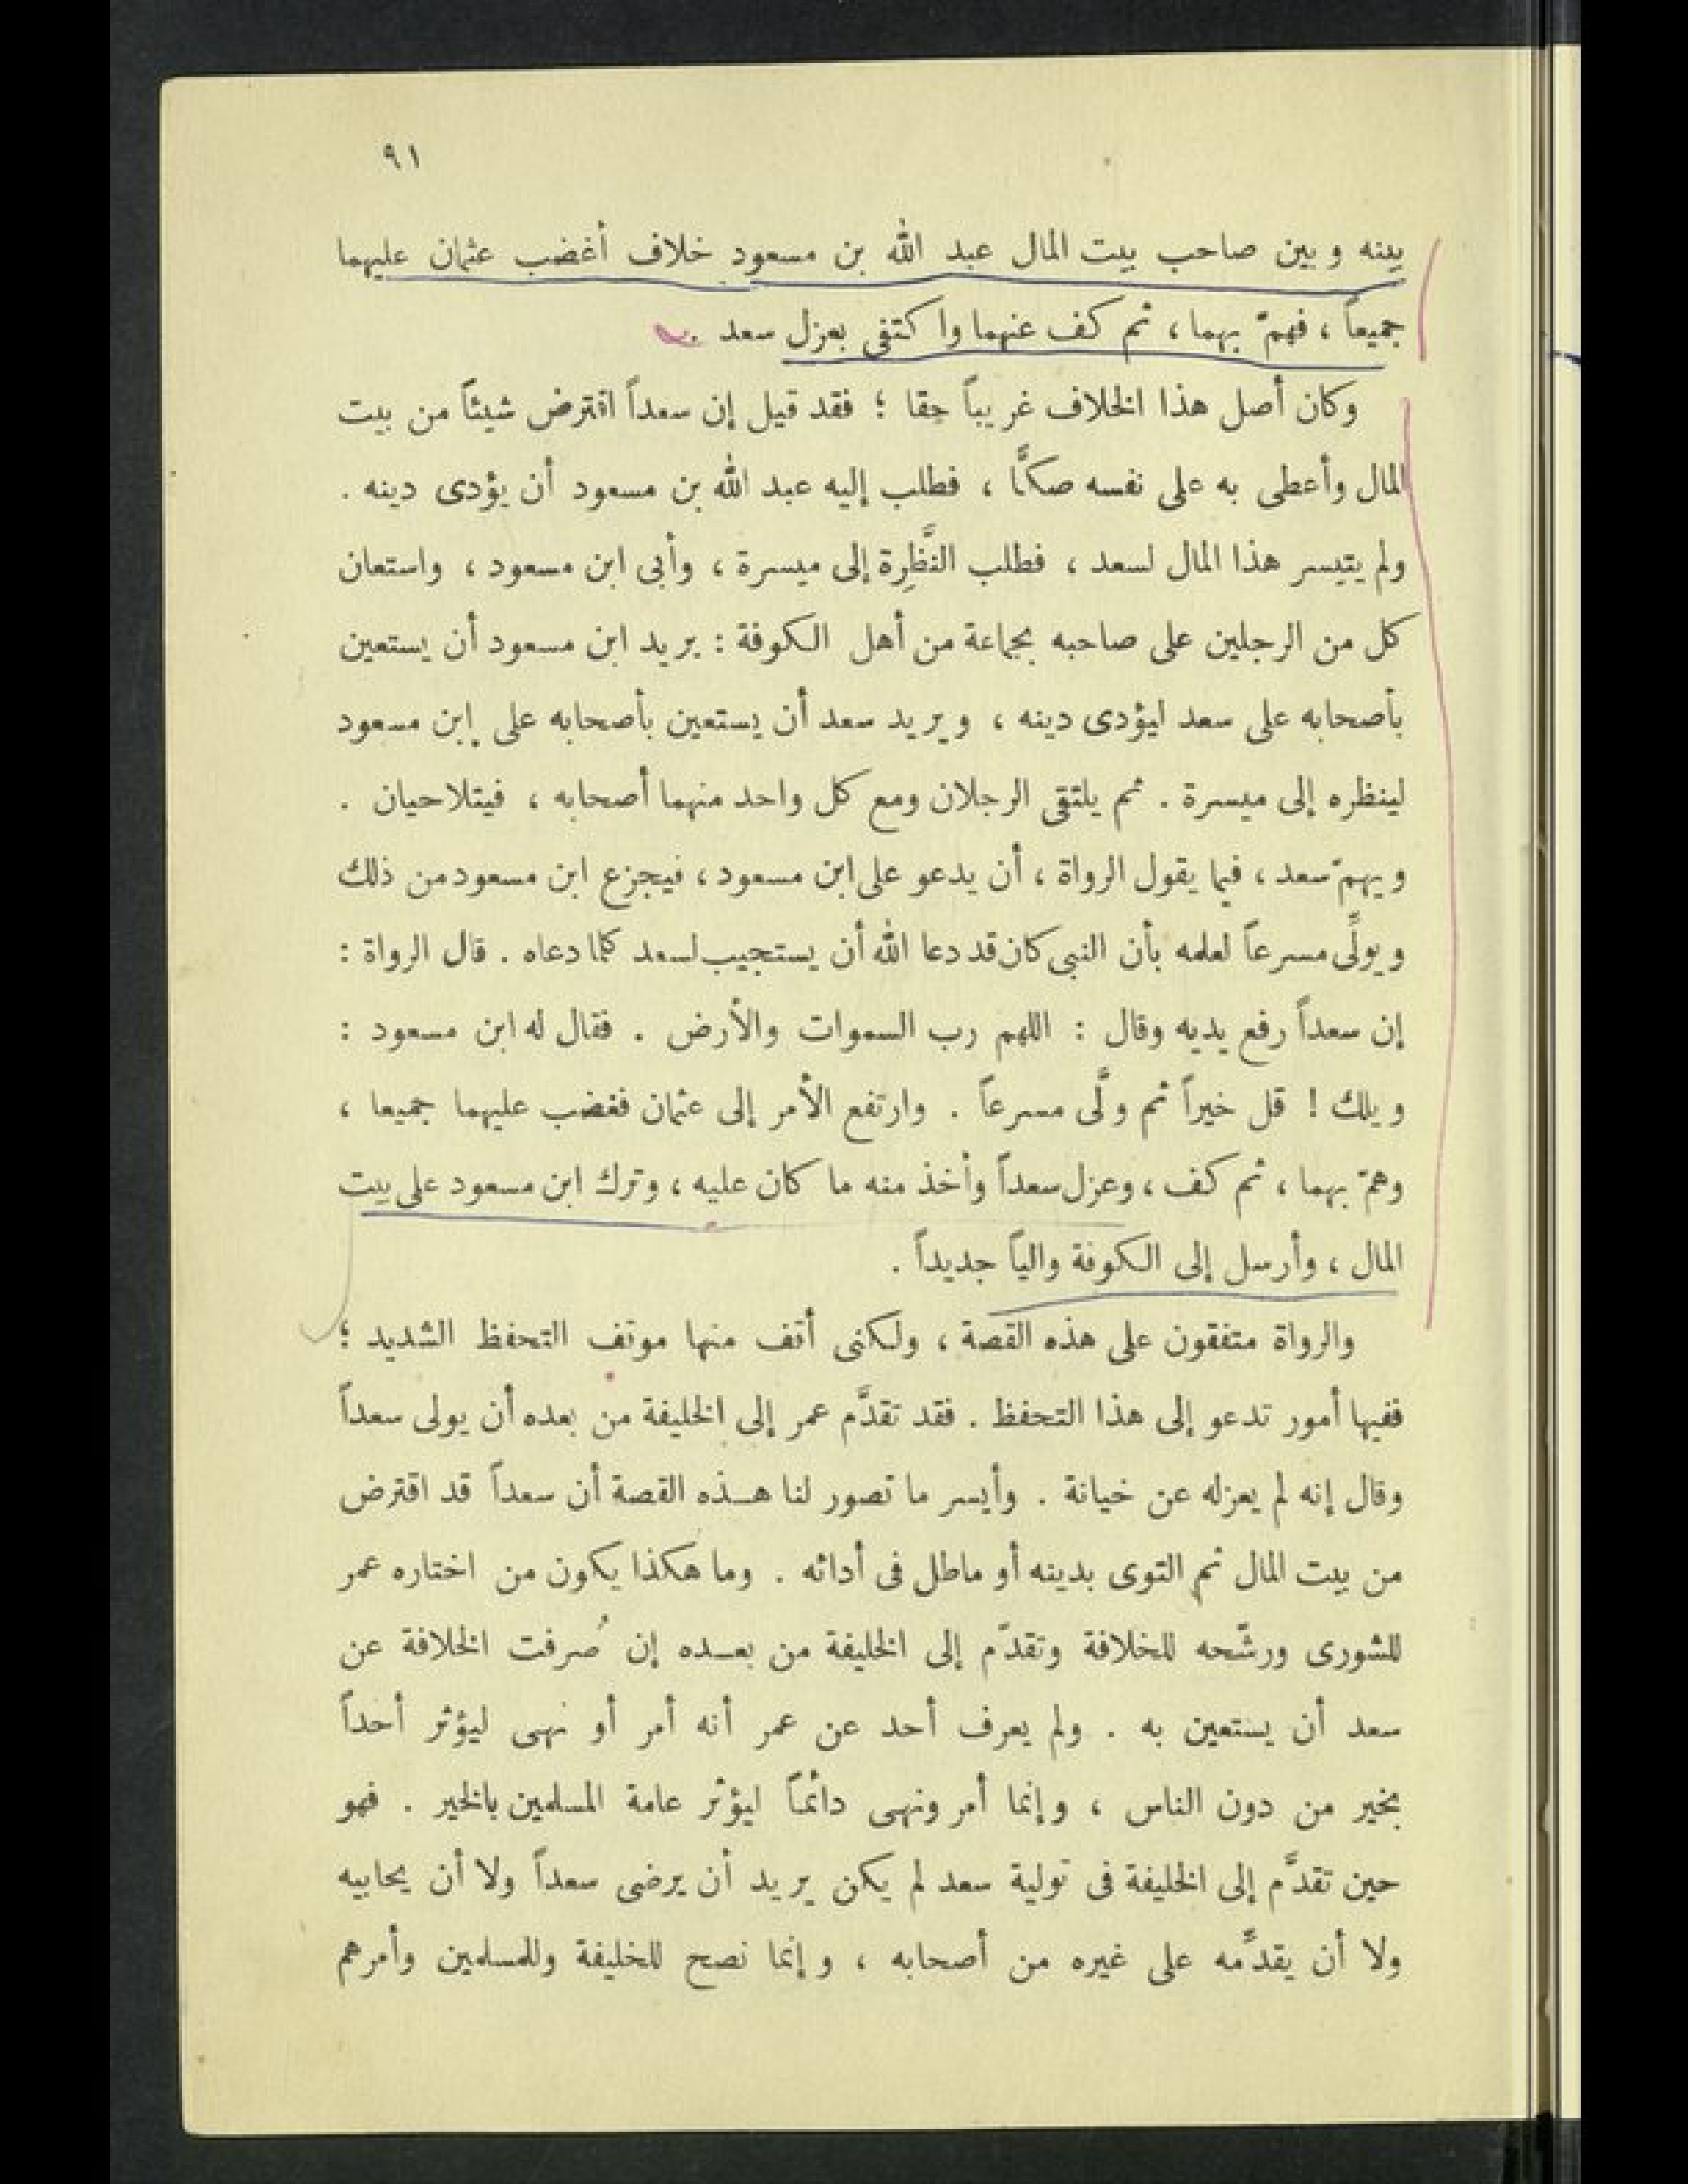 ٩١
بينه وبين صاحب بيت المال عبد الله بن مسعود خلاف أغضب عثمان عليهما
جميعاً ، فهمّ بهما ، ثم كف عنهما واكتفى بعزل سعد .
وكان أصل هذا الخلاف غريباً حقا ؛ فقد قيل إن سعداً اقترض شيئاً من بيت
المال وأعطى به على نفسه صكًّا ، فطلب إليه عبد الله بن مسعود أن يؤدى دينه .
ولم يتيسر هذا المال لسعد ، فطلب النَّظِرة إلى ميسرة ، وأبى ابن مسعود ، واستعان
كل من الرجلين على صاحبه بجماعة من أهل الكوفة : يريد ابن مسعود أن يستعين
بأصحابه على سعد ليؤدى دينه ، ويريد سعد أن يستعين بأصحابه على إبن مسعود
لينظره إلى ميسرة . ثم يلتقى الرجلان ومع كل واحد منهما أصحابه ، فيتلاحيان .
ويهمّ سعد ، فيما يقول الرواة ، أن يدعو على ابن مسعود ، فيجزع ابن مسعود من ذلك
ويولِّى مسرعاً لعلمه بأن النبى كان قد دعا الله أن يستجيب لسعد كلما دعاه . قال الرواة :
إن سعداً رفع يديه وقال : اللهم رب السموات والأرض . فقال له ابن مسعود :
ويلك ! قل خيراً ثم ولَّى مسرعاً . وارتفع الأمر إلى عثمان فغضب عليهما جميعا ،
وهمّ بهما ، ثم كف ، وعزل سعداً وأخذ منه ما كان عليه ، وترك ابن مسعود على بيت
المال ، وأرسل إلى الكوفة والياً جديداً .
والرواة متفقون على هذه القصة ، ولكنى أقف منها موقف التحفظ الشديد ؛
ففيها أمور تدعو إلى هذا التحفظ . فقد تقدَّم عمر إلى الخليفة من بعده أن يولى سعداً
وقال إنه لم يعزله عن خيانة . وأيسر ما تصور لنا هـذه القصة أن سعداً قد اقترض
من بيت المال ثم التوى بدينه أو ماطل فى أدائه . وما هكذا يكون من اختاره عمر
للشورى ورشّحه للخلافة وتقدّم إلى الخليفة من بعـده إن صُرفت الخلافة عن
سعد أن يستعين به . ولم يعرف أحد عن عمر أنه أمر أو نهى ليؤثر أحداً
بخير من دون الناس ، وإنما أمر ونهى دائماً ليؤثر عامة المسلمين بالخير . فهو
حين تقدَّم إلى الخليفة فى تولية سعد لم يكن يريد أن يرضى سعداً ولا أن يحابيه
ولا أن يقدِّمه على غيره من أصحابه ، وإنما نصح للخليفة وللمسلمين وأمرهم